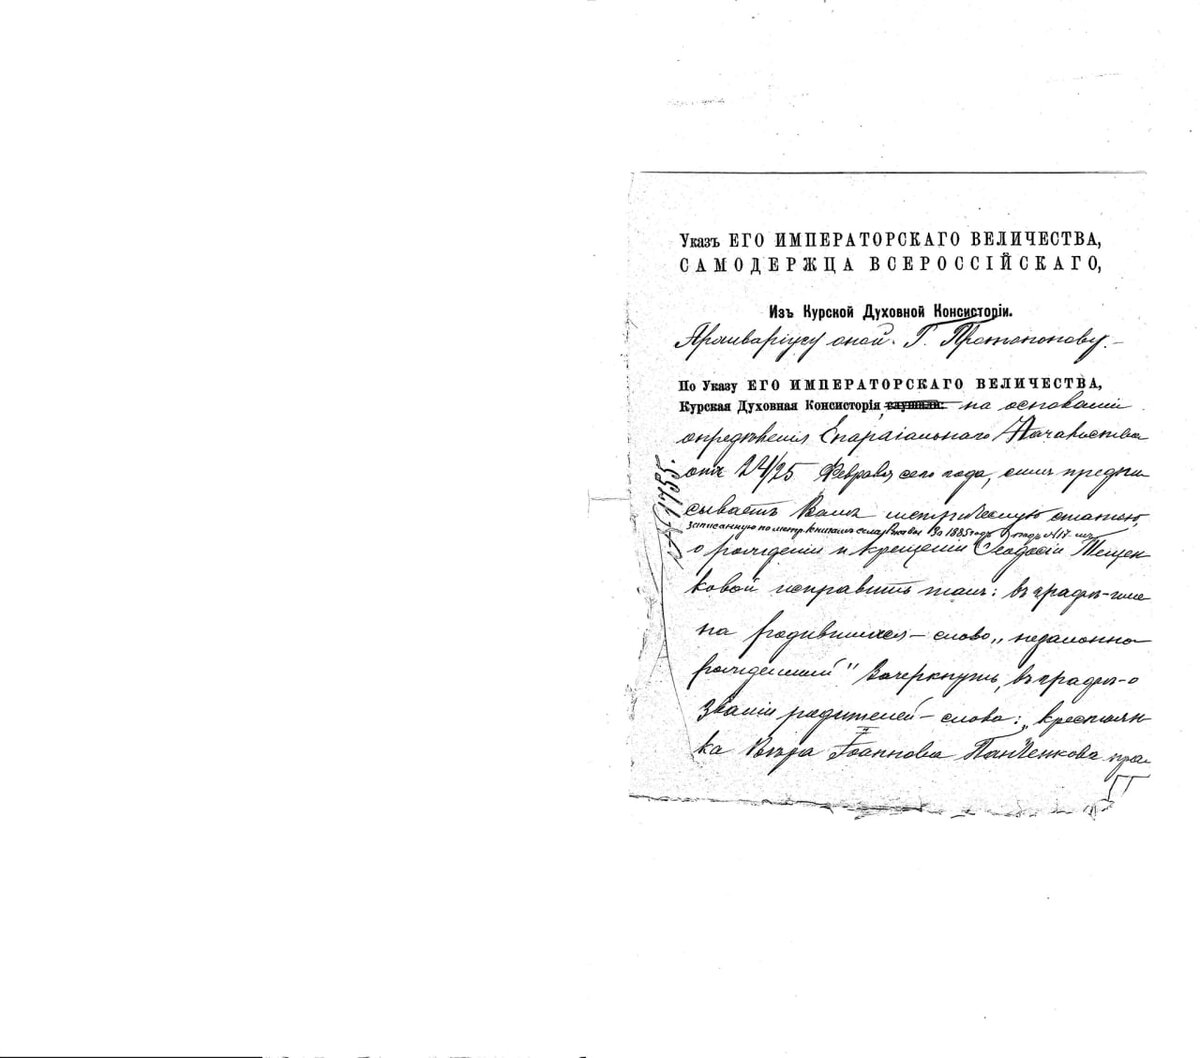 Указъ ЕГО ИМПЕРАТОРСКАГО ВЕЛИЧЕСТВА,
САМОДЕРЖЦА ВСЕРОССІЙСКАГО,
Изъ Курской Духовной Консисторіи.
Архиваріусу оной Г. Протопопову.
По Указу ЕГО ИМПЕРАТОРСКАГО ВЕЛИЧЕСТВА,
Курская Духовная Консисторія слушала: на основаніи
опредѣленія Епархіальнаго Начальства
отъ 24/25 Февраля сего года, симъ предпи
сываетъ Вамъ метрическую статью,
записанную по метр. книгамъ села за 1885 годъ подъ №17 мъ
о рожденіи и крещеніи Ѳеодосіи Тещен
ковой исправить такъ: въ графѣ- име
на родившихся - слово „незаконно
рожденный" зачеркнуть, въ графѣ- о
званіи родителей - слова: „крестьян
ка Вѣра Іоаннова Панченкова пра
№ 1755.